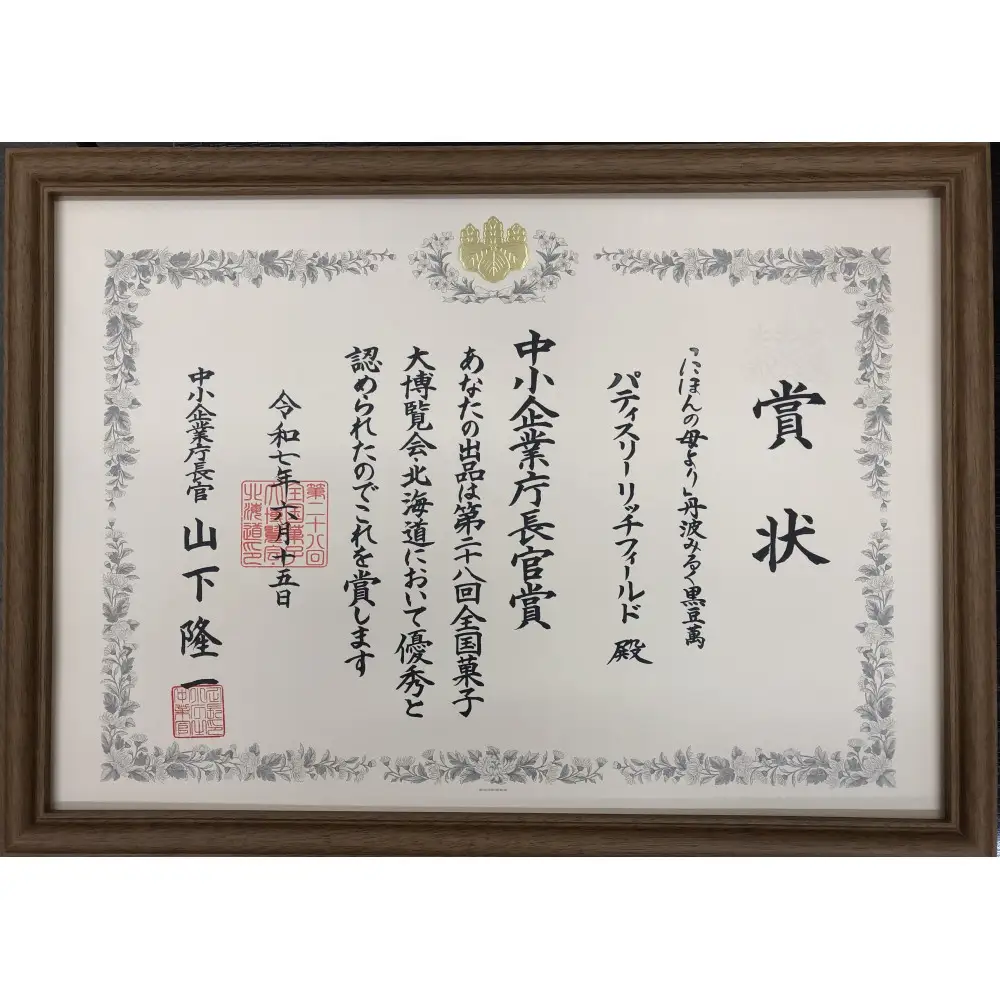 賞状
にほんの母より 丹波みるく黒豆萬
パティスリーリッチフィールド 殿
中小企業庁長官賞
あなたの出品は第二十八回全国菓子
大博覧会・北海道において優秀と
認められたのでこれを賞します
令和七年六月十五日
第二十八回
全国菓子
大博覧会
北海道印
中小企業庁長官 山下隆一